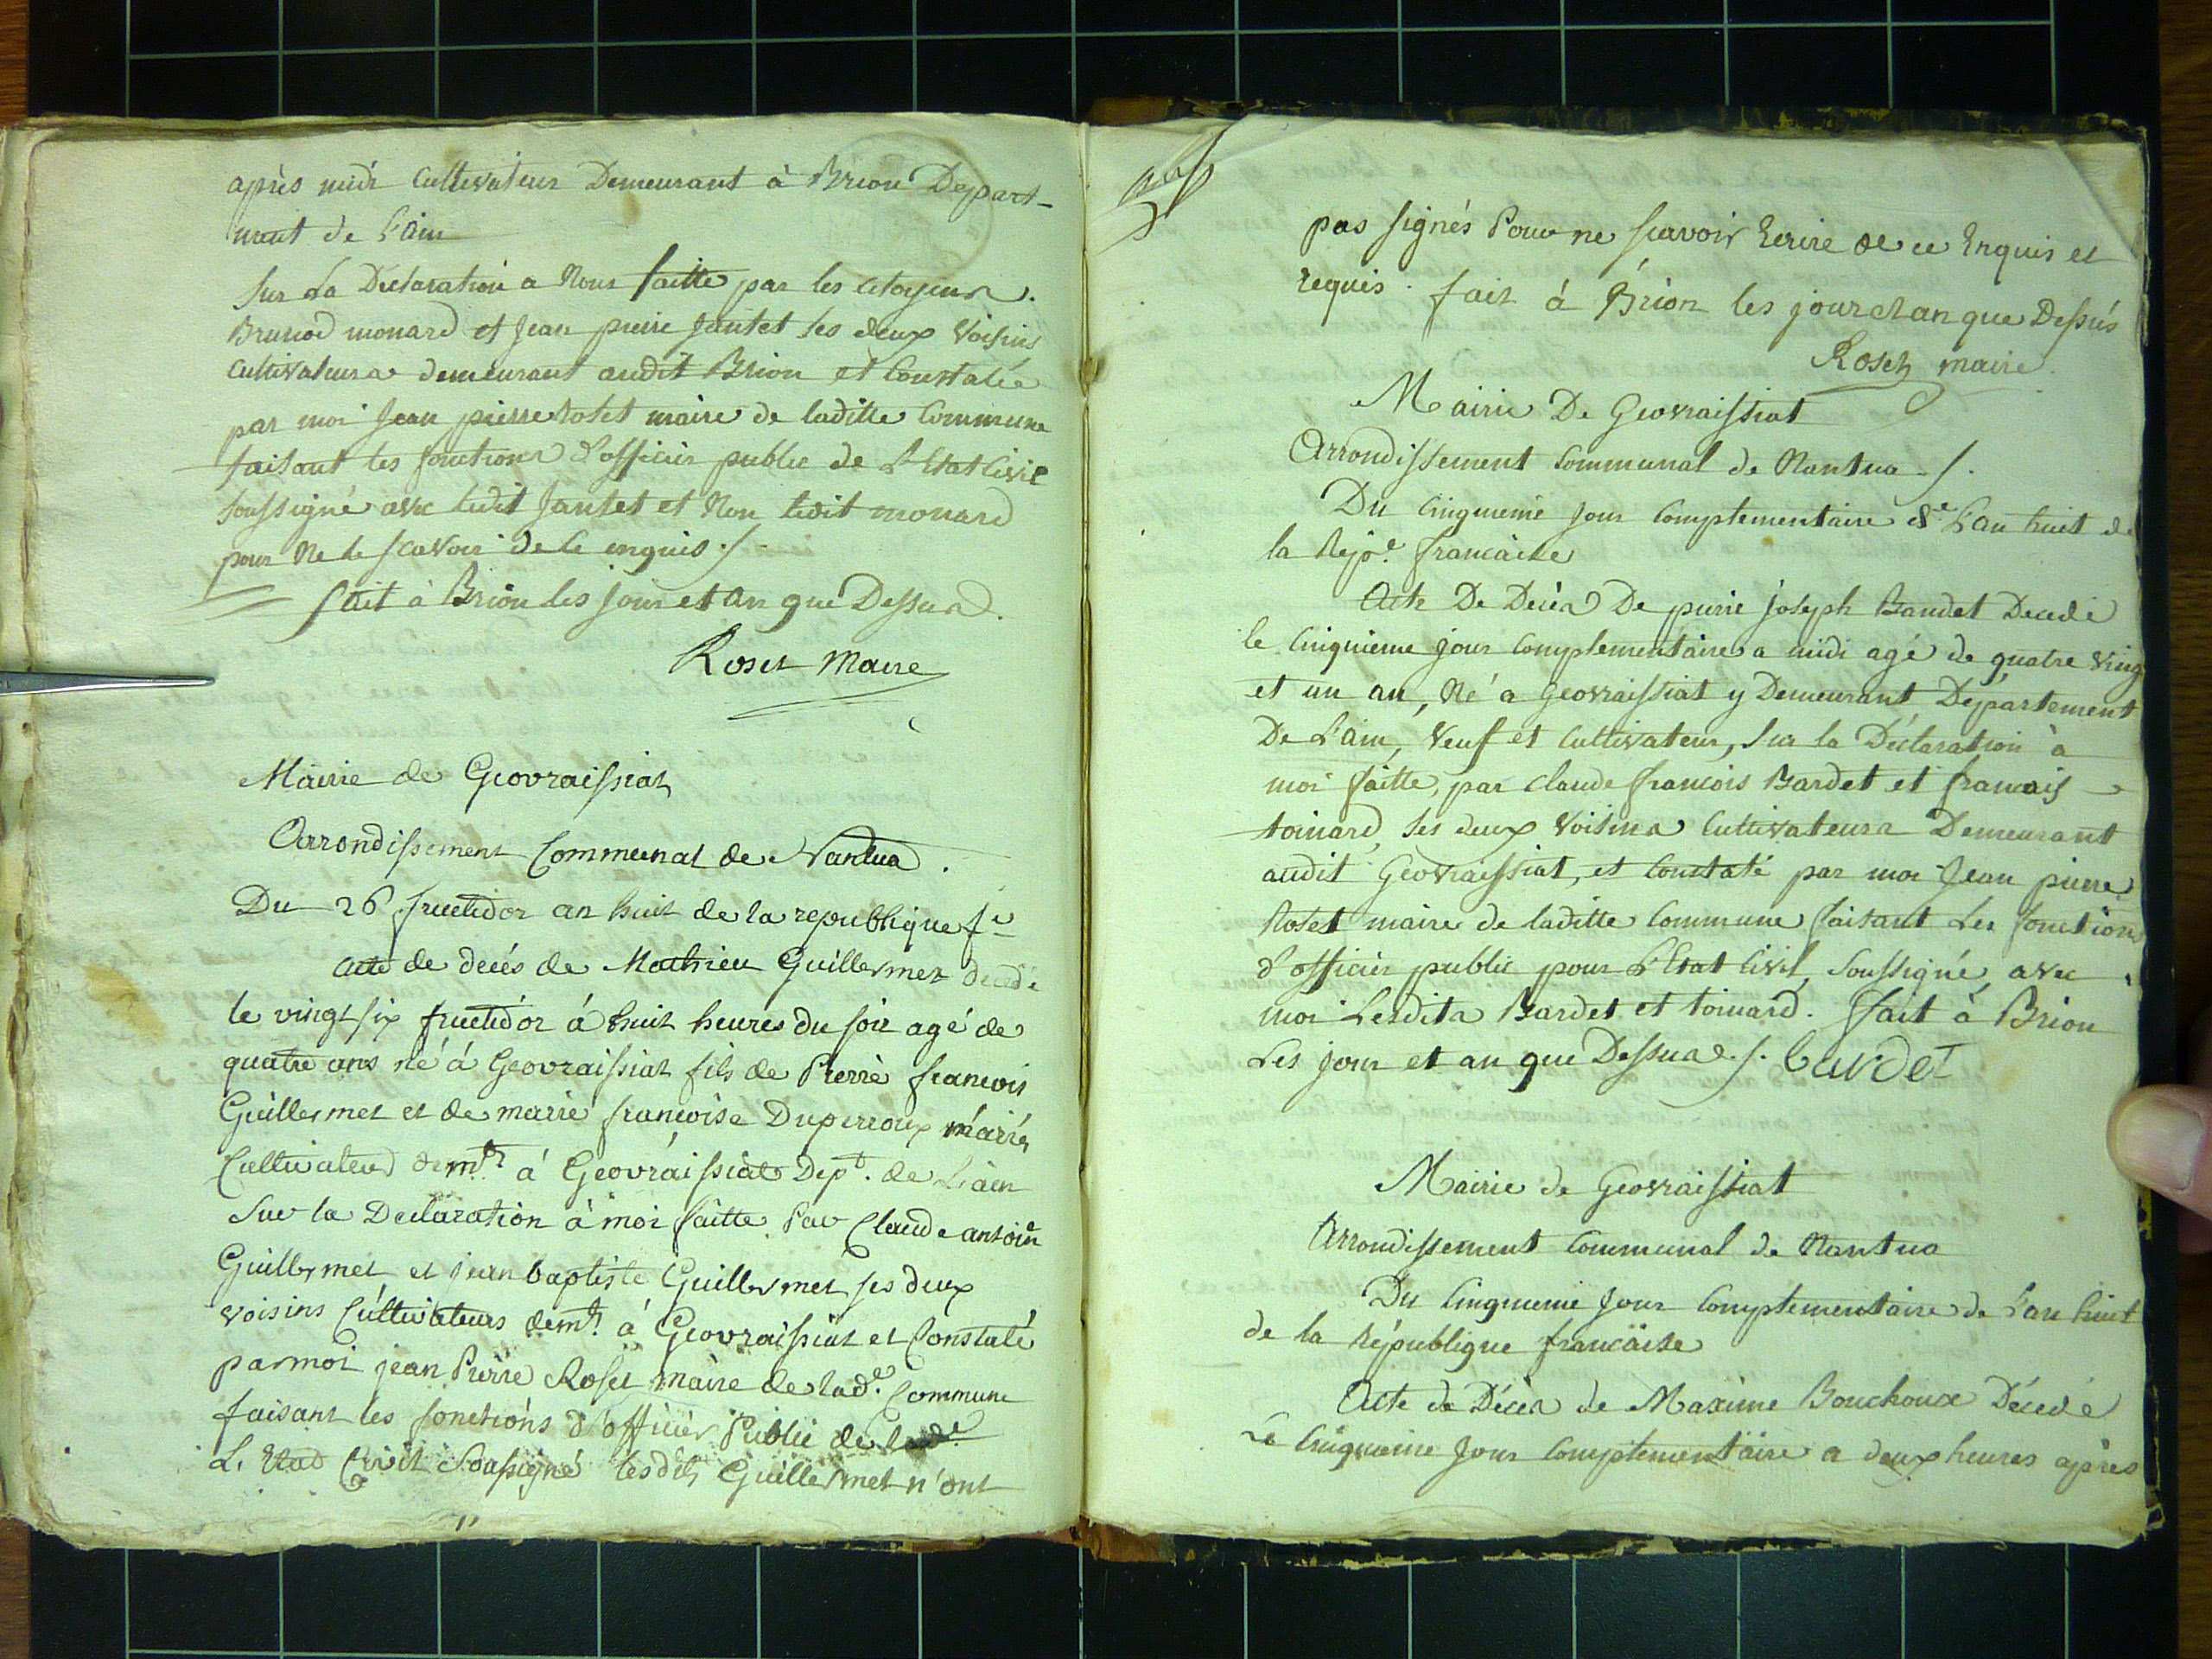 après midi Cultivateur Demeurant à Brion Depart-
ment de L'ain
Sur La Declaration a Nous faitte par les Citoyens.
Brunod monard et Jean pierre Jantet ses deux Voisins
Cultivateurs demeurant audit Brion et Constatée
par moi Jean pierre Roset maire de laditte Commune
faisant les fonctions d'officier public de L'Etat Civil
soussigné avec ledit Jantet et Non ledit monard
pour Ne le scavoir de Ce enquis ./.
fait à Brion Les Jour et an que Dessus.
Roset Maire
Mairie de Geovraissiat
Arrondissement Communal de Nantua.
Du 26 fructidor an huit de la republique fe
acte de decés de Mathieu Guillermet decedé
le vingt six fructidor á huit heures du soir agé de
quatre ans né á Geovraissiat fils de Pierre francois
Guillermet et de marie francoise Duperroux mariés
Cultivateurs demts á Geovraissiat Dept. de L'ain
Sur la Declaration á moi faitte Par Claude antoine
Guillermet et jean baptiste Guillermet ses deux
voisins Cultivateurs demts á Geovraissiat et Constaté
par moi jean Pierre Roset maire de lade. Commune
faisant les fonctions d'officier Public de lade
L'Etat Civil Soussigné lesdits Guillermet n'ont
pas signés Pour ne scavoir Ecrire de ce Enquis et
requis. fait á Brion les jour et an que Dessus
Roset maire.
Mairie De Geovraissiat
Arrondissement Communal de Nantua ./.
Du Cinquieme Jour Complementaire de L'an huit de
la Repe. francaise
Acte De Décès De pierre joseph Baudet Decedé
le Cinquieme jour Complementaire a midi agé de quatre Vingt
et un an, Né a Geovraissiat y Demeurant Département
De L'ain, Veuf et Cultivateur, Sur la Déclaration à
moi faitte, par Claude francois Bardet et francois
toinard, ses deux Voisins Cultivateurs Demeurant
audit Geovraissiat, et Constaté par moi Jean pierre
Roset maire de laditte Commune faisant Les fonctions
d'officier public pour L'Etat Civil, Soussigné, avec
moi Lesdits Bardet et toinard. fait à Brion
Les jour et an que Dessus ./. bardet
Mairie de Geovraissiat
Arrondissement Communal de Nantua
Du Cinquieme Jour Complementaire de L'an huit
de la République francaise
Acte de Décès de Maxime Bouchoux Décédé
Le Cinquieme Jour Complementaire a deux heures après